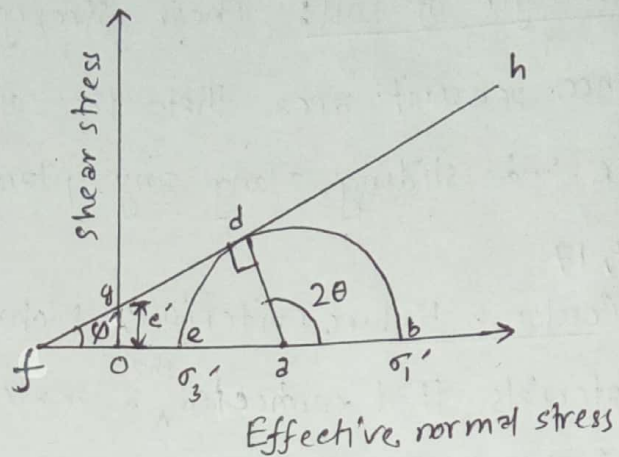 shear stress
h
d
g
c'
φ'
2θ
f
o
e
a
b
σ3'
σ1'
Effective normal stress